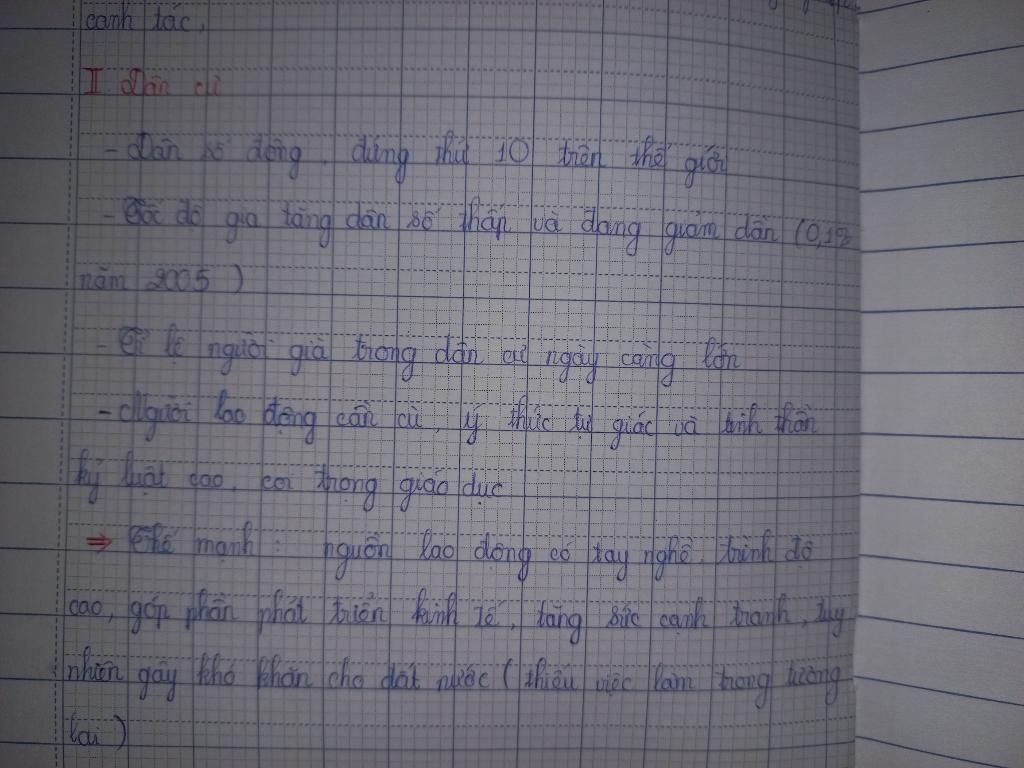 canh tác,
I Dân cư
- Dân số đông, đứng thứ 10 trên thế giới
- Tốc độ gia tăng dân số thấp và đang giảm dần (0,1%
năm 2005 )
- Tỉ lệ người già trong dân cư ngày càng lớn
- Người lao động cần cù, ý thức tự giác và tinh thần
kỷ luật cao, coi trọng giáo dục
⇒ Thế mạnh : nguồn lao động có tay nghề, trình độ
cao, góp phần phát triển kinh tế, tăng sức cạnh tranh, tuy
nhiên gây khó khăn cho đất nước ( thiếu việc làm trong tương
lai )